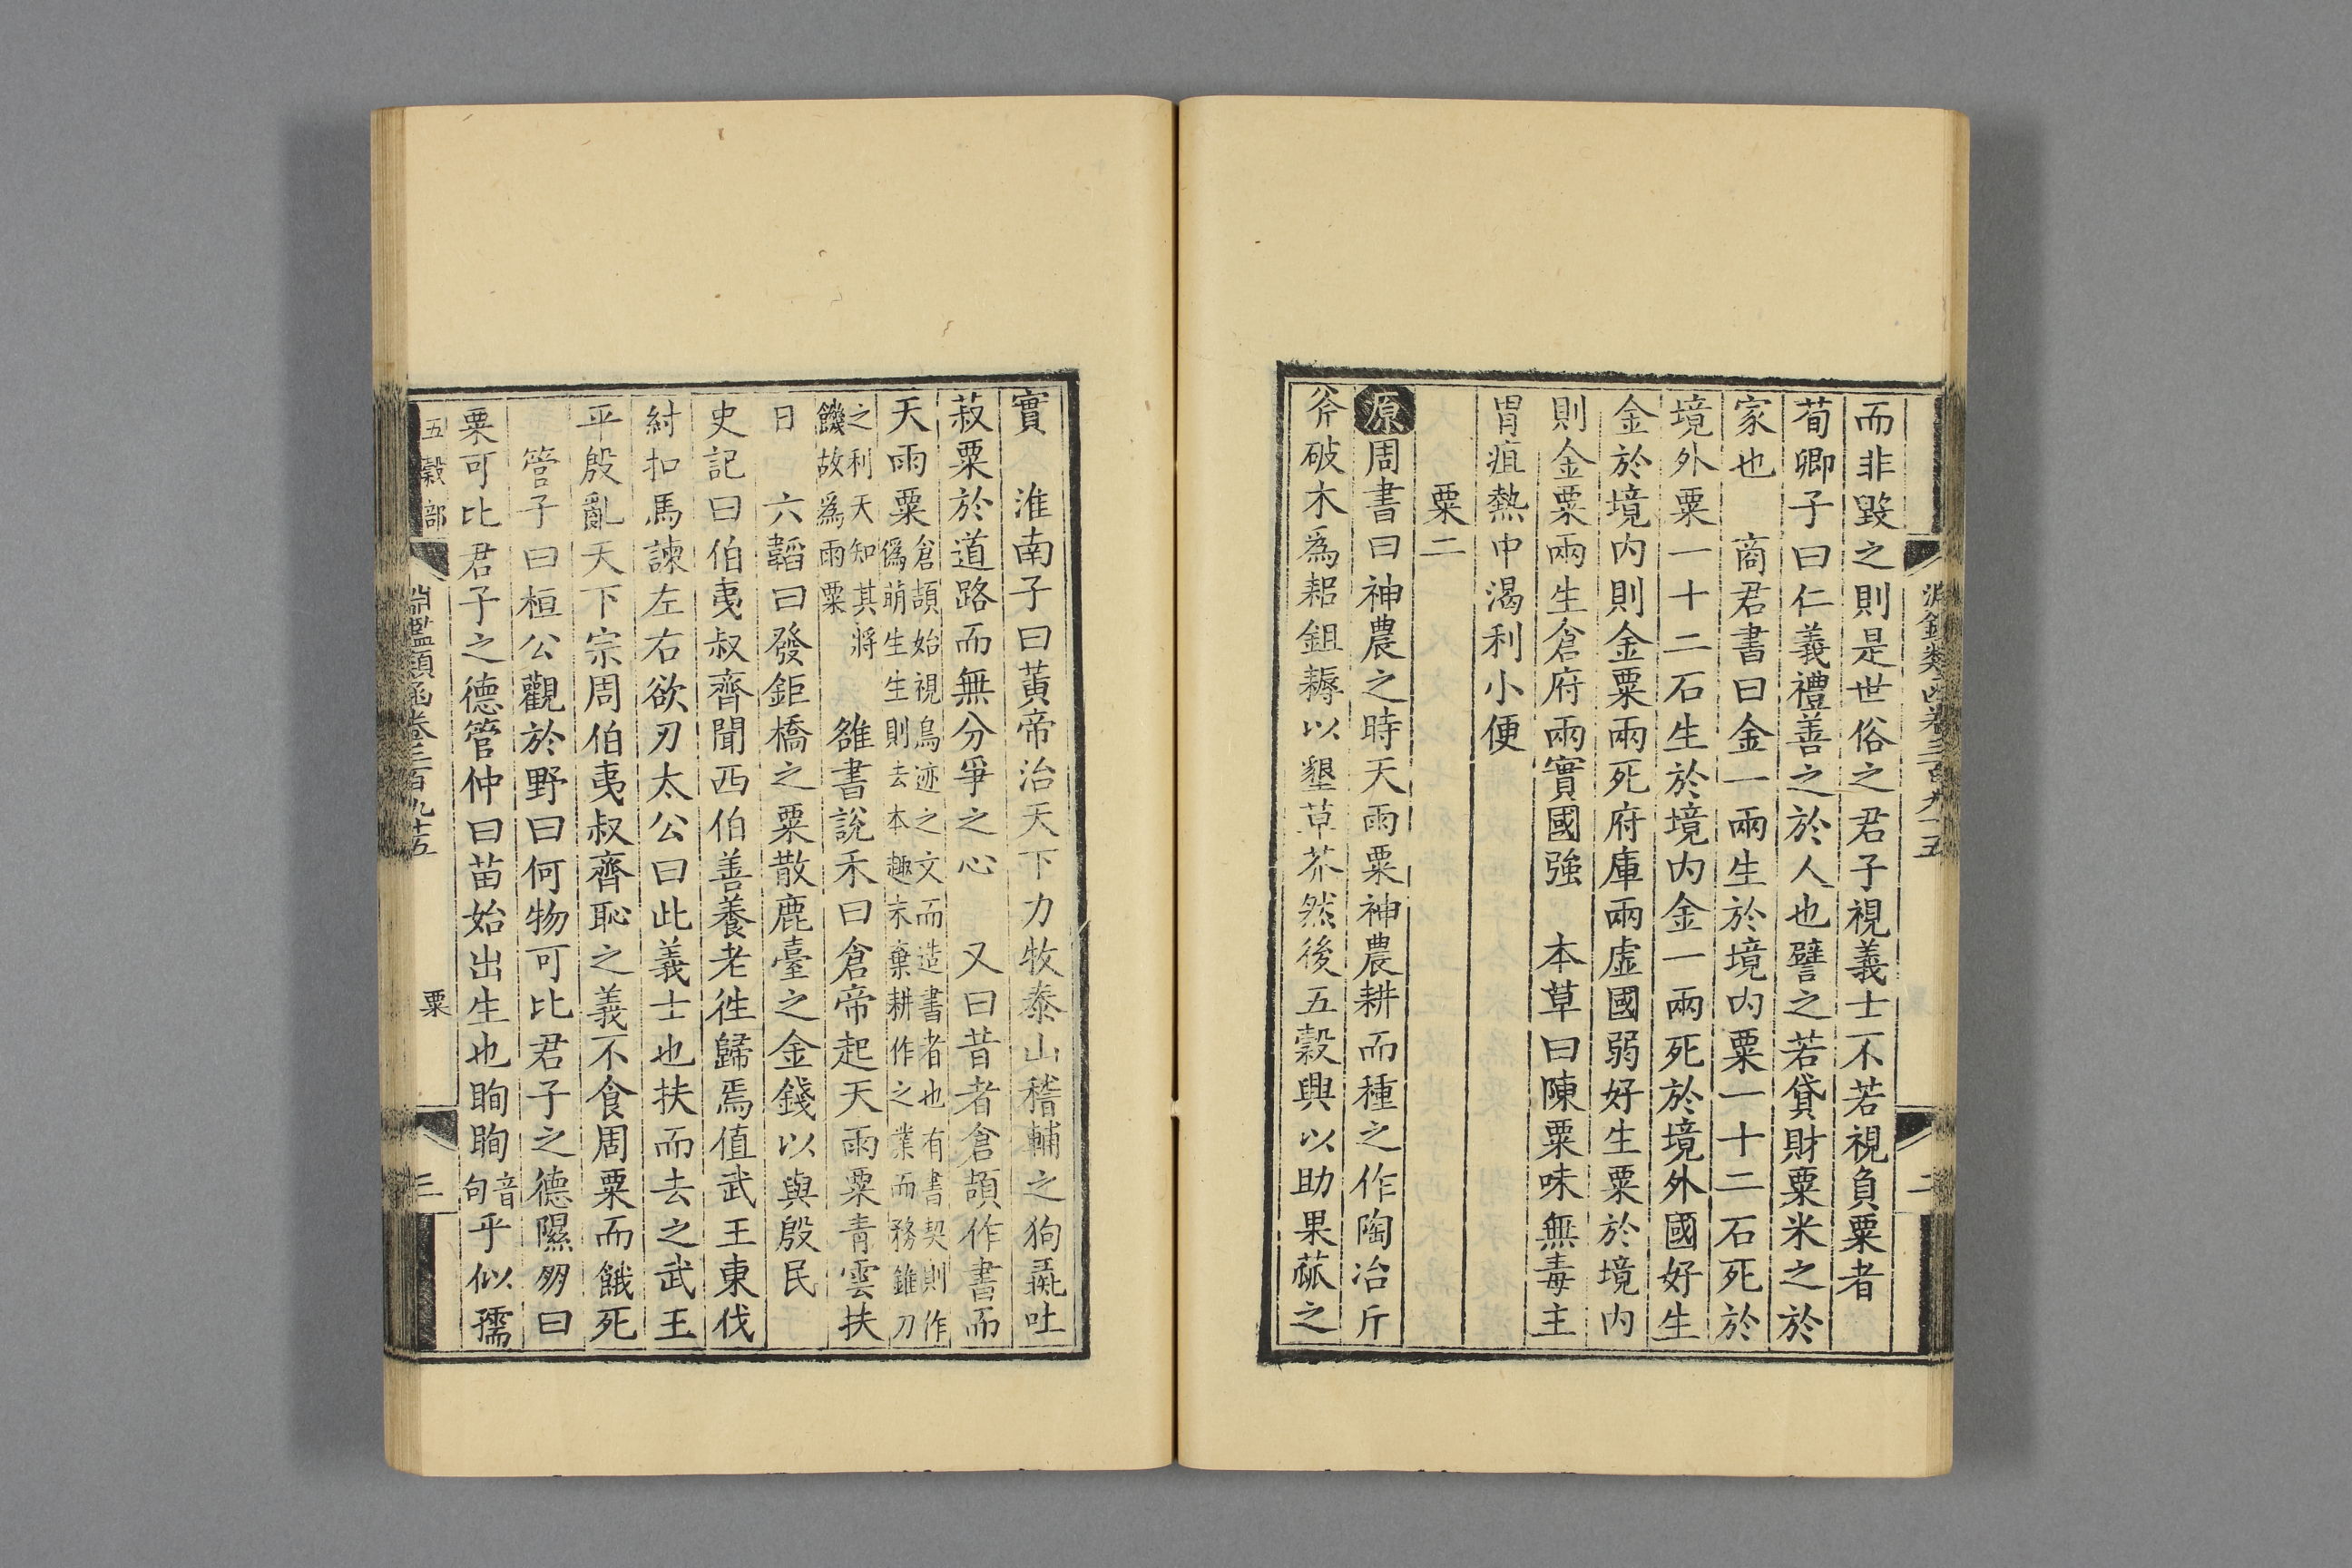 而非毀之則是世俗之君子視義士不若視負粟者
荀卿子曰仁義禮善之於人也譬之若貸財粟米之於
家也　商君書曰金一兩生於境内粟一十二石死於
境外粟一十二石生於境内金一兩死於境外國好生
金於境内則金粟兩死府庫兩虛國弱好生粟於境内
則金粟兩生倉府兩實國強　本草曰陳粟味無毒主
胃疽熱中渴利小便
粟二
原周書曰神農之時天雨粟神農耕而種之作陶冶斤
斧破木為耜鉏耨以墾草芥然後五穀興以助果蓏之
實　淮南子曰黃帝治天下力牧泰山稽輔之狗彘吐
菽粟於道路而無分爭之心　又曰昔者倉頡作書而
天雨粟倉頡始視鳥迹之文而造書者也有書契則作
僞萌生生則去本趣末棄耕作之業而務錐刀
之利天知其將
饑故為雨粟　雒書說禾曰倉帝起天雨粟青雲扶
日　六韜曰發鉅橋之粟散鹿臺之金錢以與殷民
史記曰伯夷叔齊聞西伯善養老徃歸焉值武王東伐
紂扣馬諫左右欲刃太公曰此義士也扶而去之武王
平殷亂天下宗周伯夷叔齊恥之義不食周粟而餓死
管子曰桓公觀於野曰何物可比君子之德隰朋曰
粟可比君子之德管仲曰苗始出生也眴眴音句乎似孺
五穀部　淵鑑類函卷三百九十五　粟　三